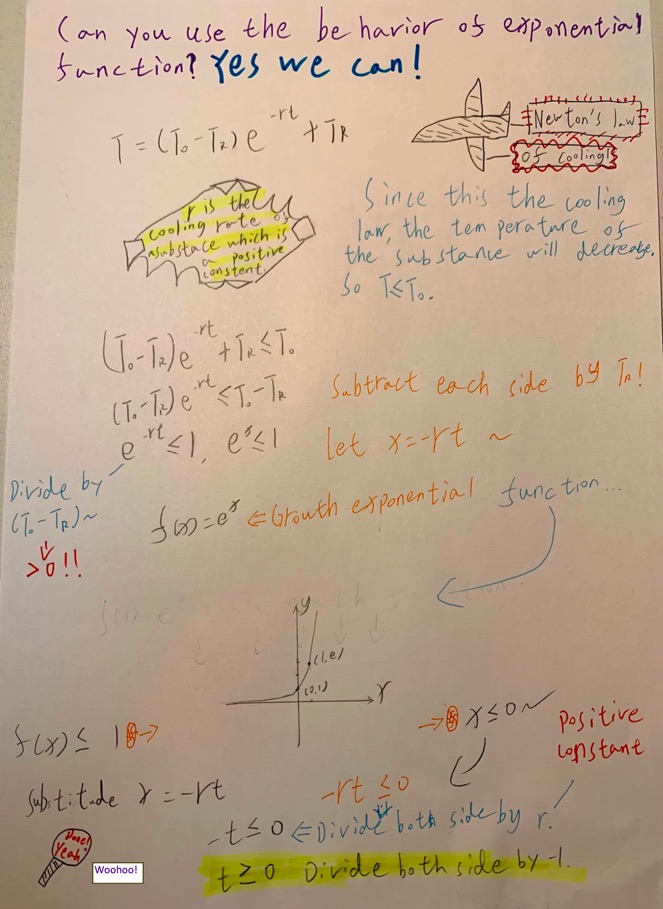 Can you use the behavior of exponential
function? Yes we can!
T = (T₀-T_R) e^{-rt} + T_R
Newton's law
of cooling!
r is the
cooling rate of
a substace which is
a positive
constent.
Since this the cooling
law, the temperature of
the substance will decrease.
So T≤T₀.
(T₀-T_R)e^{-rt} + T_R ≤ T₀
(T₀-T_R)e^{-rt} ≤ T₀-T_R
Subtract each side by T_R!
e^{-rt} ≤ 1, e^x ≤ 1
let x=-rt ~
Divide by
(T₀-T_R)~
⇓
>0!!
f(x)=e^x ⇐ Growth exponential function...
y
(1,e)
(0,1)
x
f(x) ≤ 1 →
→ x ≤ 0 ~
positive
constant
Substitude x = -rt
-rt ≤ 0
-t ≤ 0 ⇐ Divide both side by r.
t ≥ 0 Divide both side by -1.
Done!
Yeah!
Woohoo!